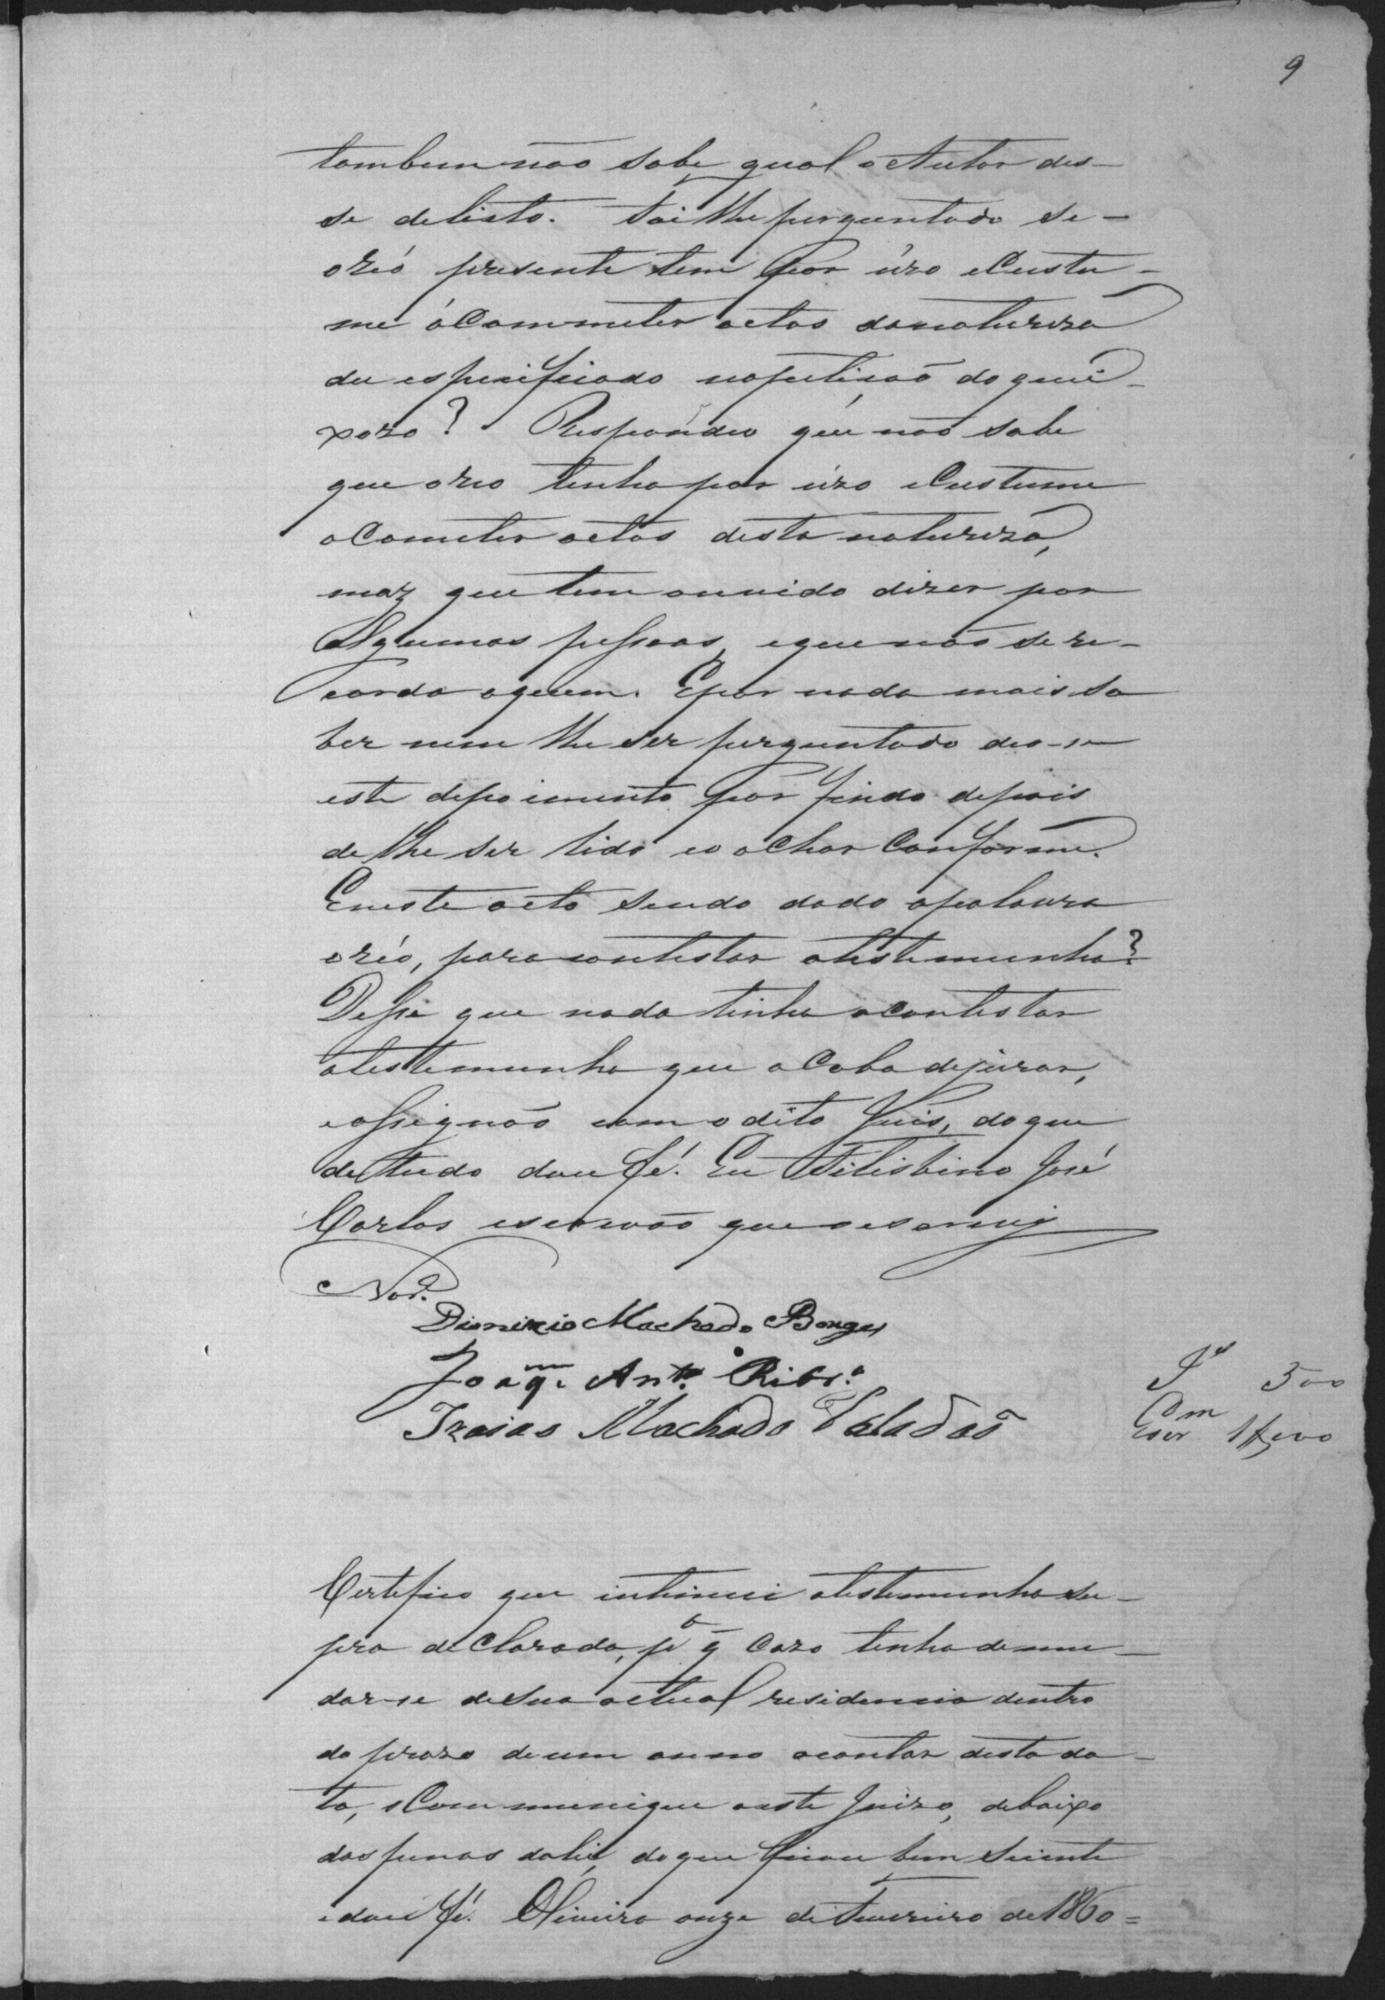 9
tambem não sabe qual o Autor des-
se delicto. Foi lhe perguntado se-
o réo presente tem por úzo e Custu-
me á Commeter actos da natureza
da espicificado na petiçaõ do quei-
xozo? Respondeo que não sabe
que o reo tenha por úzo e Custume
a Cometer actos desta natureza,
maz que tem ouvido dizer por
Algumas pessoas, e que não se re-
corda a quem. E por nada mais sa
ber nem lhe ser perguntado deo-se
este depoimento por findo depois
de lhe ser lido eo achar Conforme.
E neste acto sendo dado a palavra
o réo, para contestar a testemunha?
Desse que nada tinha a contestar
a testemunha que a Caba de jurar,
e assignaõ com o dito Juis, do que
de tudo dou fé. Eu Filisbino José
Carlos escrivaõ que o escrevi
Dionizio Machado Borges
Joaqm. Anto. Ribro.
Izaias Machado Valadaõ
Js 500
Com
Escr 1$500
Certefico que intimei a testemunha su-
pra de Clarada, pa q̃ Cazo tenha de mu-
dar-se de sua actual residencia dentro
do prazo de um anno a contar desta da-
ta, o Communique a este Juizo, debaixo
das penas da lei, do que ficou bem sciente
e dou fé. Oliveira onze de Fevereiro de 1860=